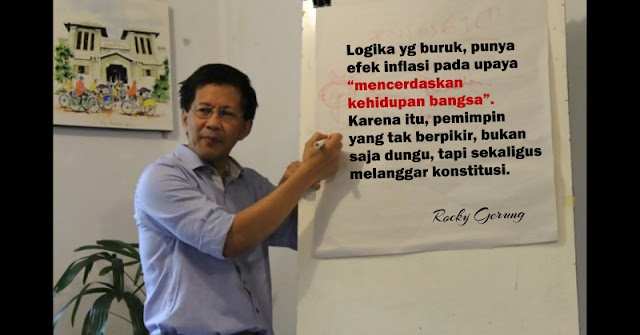 Logika yg buruk, punya
efek inflasi pada upaya
“mencerdaskan
kehidupan bangsa”.
Karena itu, pemimpin
yang tak berpikir, bukan
saja dungu, tapi sekaligus
melanggar konstitusi.
Rocky Gerung